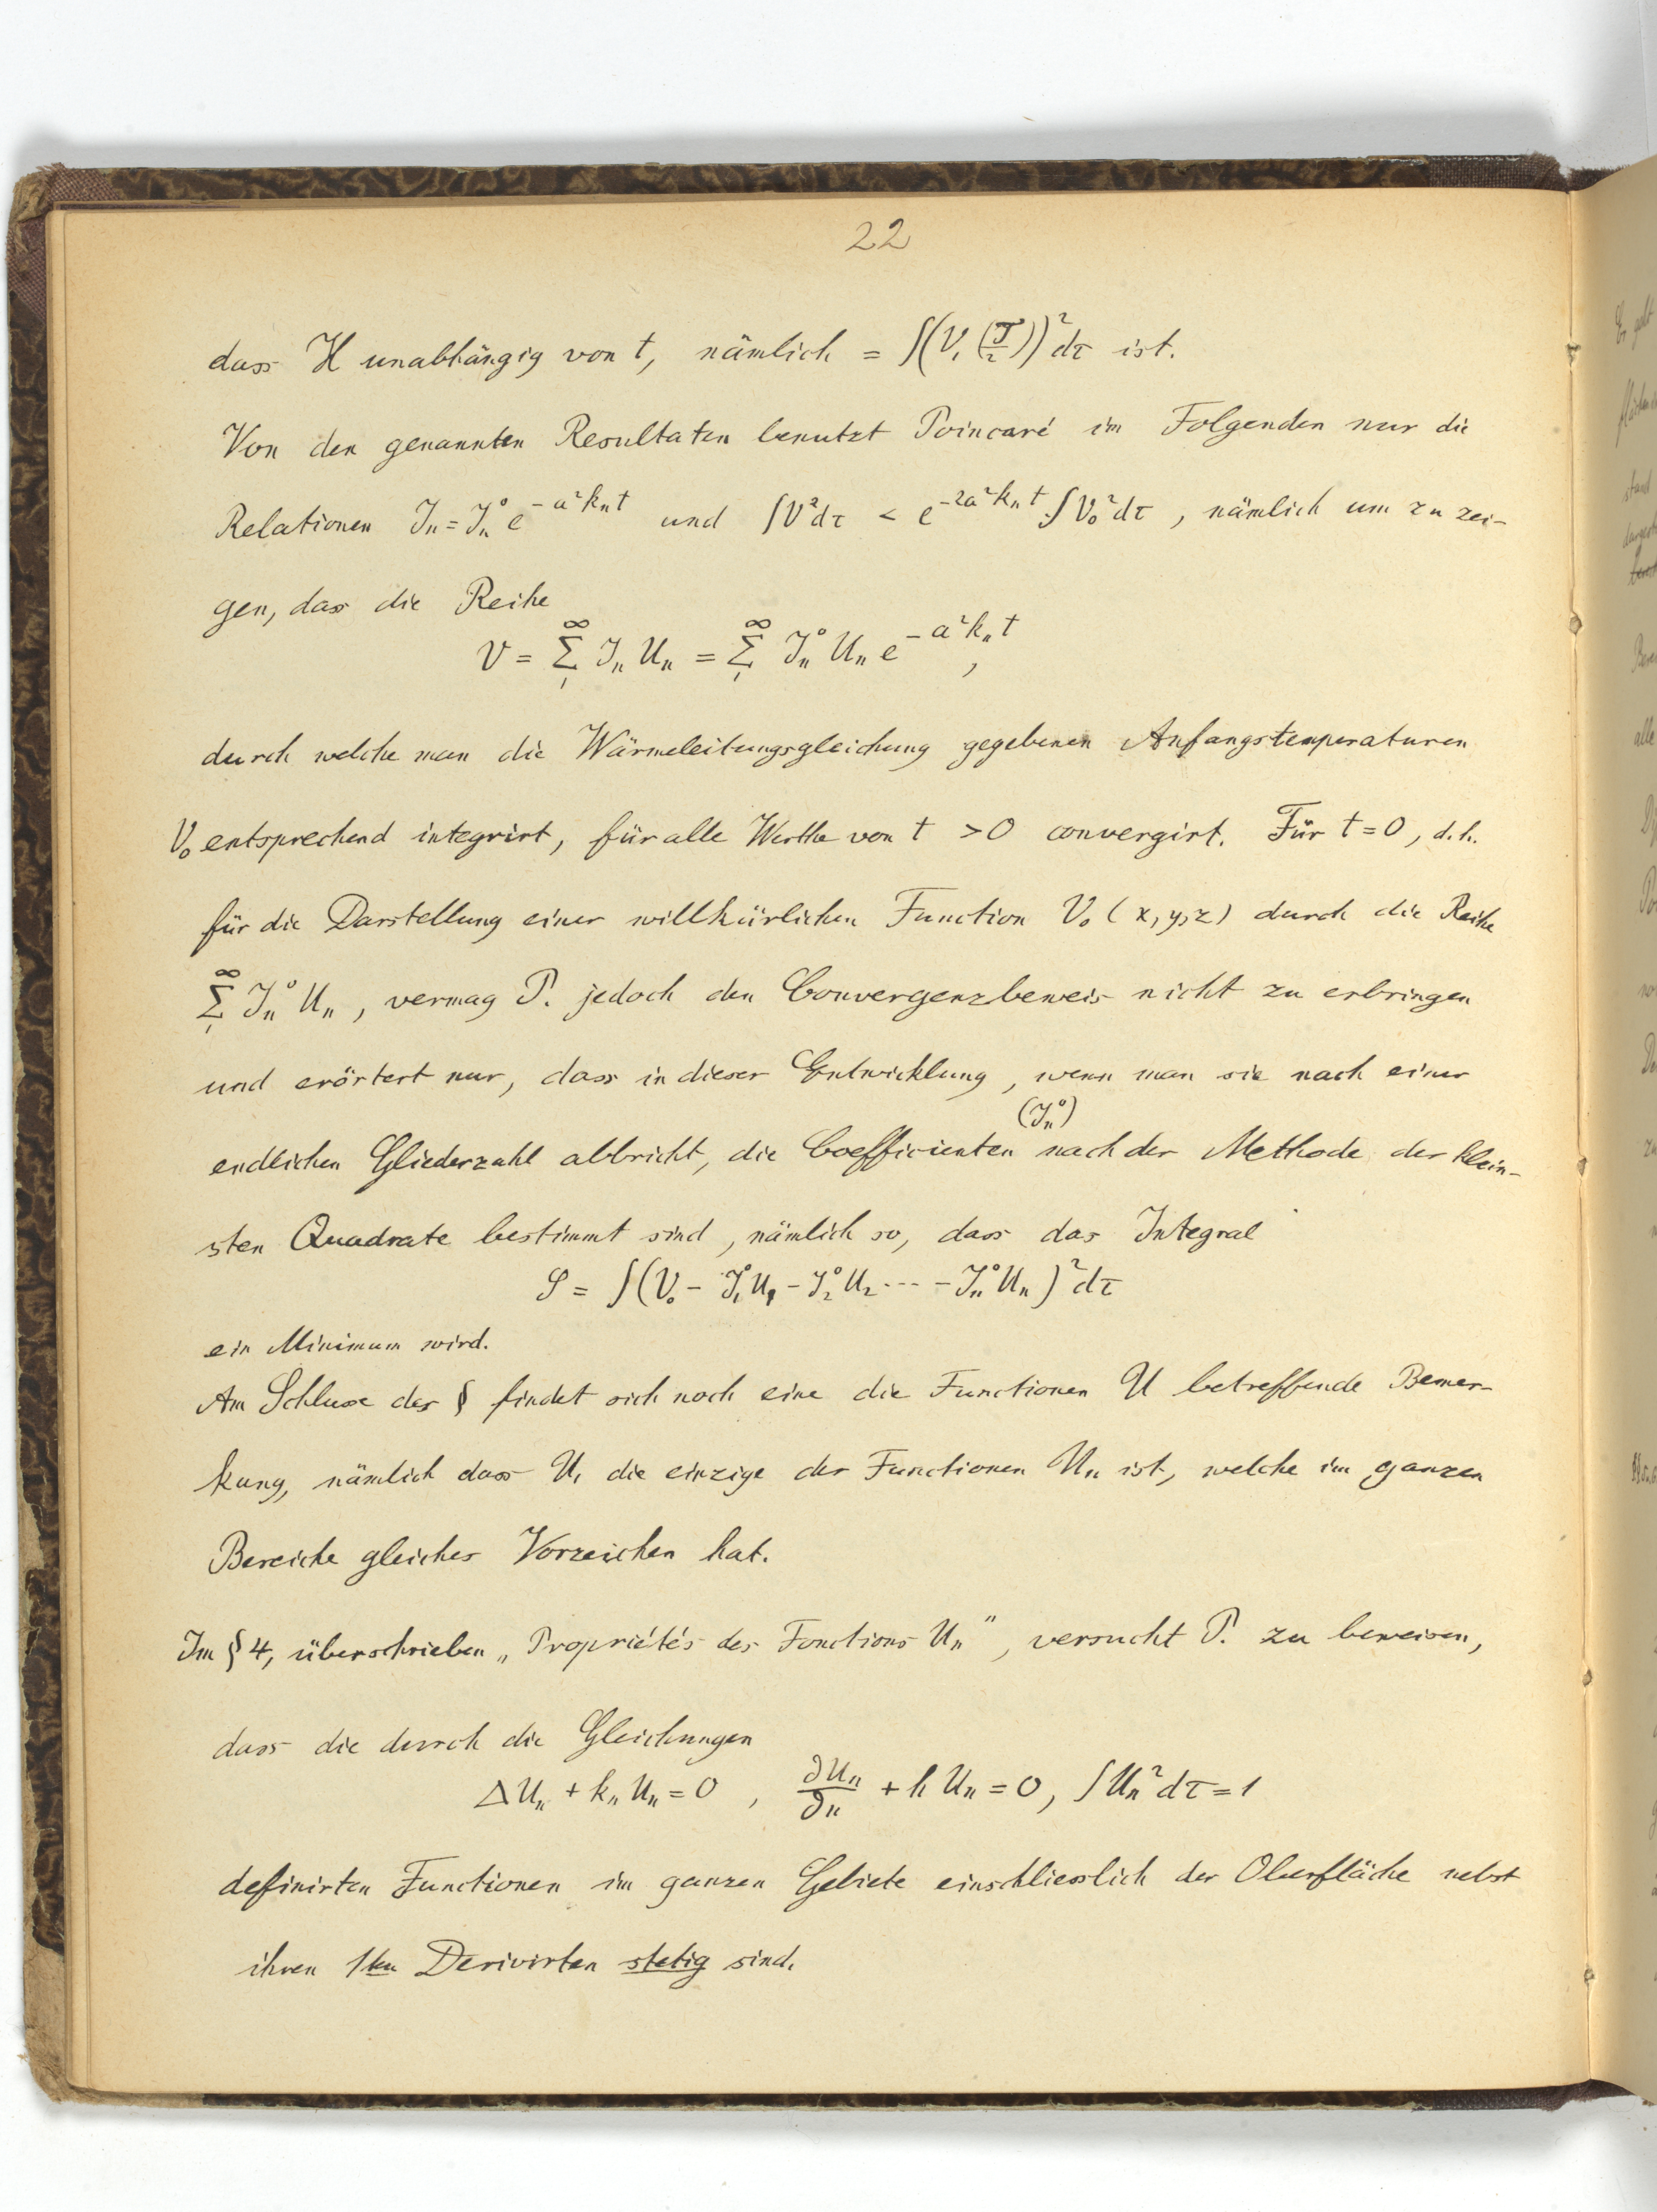 22
dass H unabhängig von t, nämlich = ∫(V₁(T/2))² dτ ist.
Von den genannten Resultaten benutzt Poincaré im Folgenden nur die
Relationen Jₙ = Jₙ⁰ e^{-a²kₙt} und ∫V²dτ < e^{-2a²kₙt} ∫V₀²dτ, nämlich um zu zei-
gen, dass die Reihe
V = Σ₁^∞ Jₙ Uₙ = Σ₁^∞ Jₙ⁰ Uₙ e^{-a²kₙt},
durch welche man die Wärmeleitungsgleichung gegebenen Anfangstemperaturen
V₀ entsprechend integrirt, für alle Werthe von t > 0 convergirt. Für t = 0, d.h.
für die Darstellung einer willkürlichen Function V₀ (x, y, z) durch die Reihe
Σ₁^∞ Jₙ⁰ Uₙ, vermag P. jedoch den Convergenzbeweis nicht zu erbringen
und erörtert nur, dass in dieser Entwicklung, wenn man sie nach einer
(Jₙ⁰)
endlichen Gliederzahl abbricht, die Coefficienten nach der Methode der klein-
sten Quadrate bestimmt sind, nämlich so, dass das Integral
S = ∫(V₀ - J₁⁰U₁ - J₂⁰U₂ ... - Jₙ⁰Uₙ)² dτ
ein Minimum wird.
Am Schlusse des § findet sich noch eine die Functionen U betreffende Bemer-
kung, nämlich dass U₁ die einzige der Functionen Uₙ ist, welche im ganzen
Bereiche gleiches Vorzeichen hat.
Im § 4, überschrieben „Propriétés des Fonctions Uₙ", versucht P. zu beweisen,
dass die durch die Gleichungen
ΔUₙ + kₙUₙ = 0, ∂Uₙ/∂n + h Uₙ = 0, ∫Uₙ²dτ = 1
definirten Functionen im ganzen Gebiete einschliesslich der Oberfläche nebst
ihren 1ten Derivirten stetig sind.